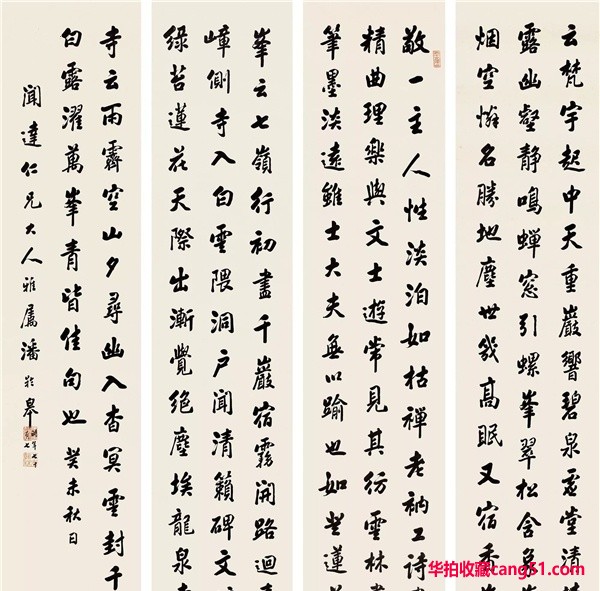 云梵宇起中天重巖響碧泉虛堂清
露幽壑靜鳴蟬窓引螺峯翠松含
烟空慚名勝地塵世幾高眠又宿香
敬一主人性淡泊如枯禪老衲工詩
精曲理樂與文士遊常見其仿雲林
筆墨淡遠雖士大夫無以踰也如登蓮
峯云七嶺行初盡千巖宿霧開路迴
嶂側寺入白雲隈洞户聞清籟碑文
綠苔蓮花天際出漸覺絕塵埃龍泉
寺云雨霽空山夕尋幽入杳冥雲封千
白露濯萬峯青皆佳句也癸未秋日
聞達仁兄大人雅屬潘齡皋
华拍收藏cang51.com